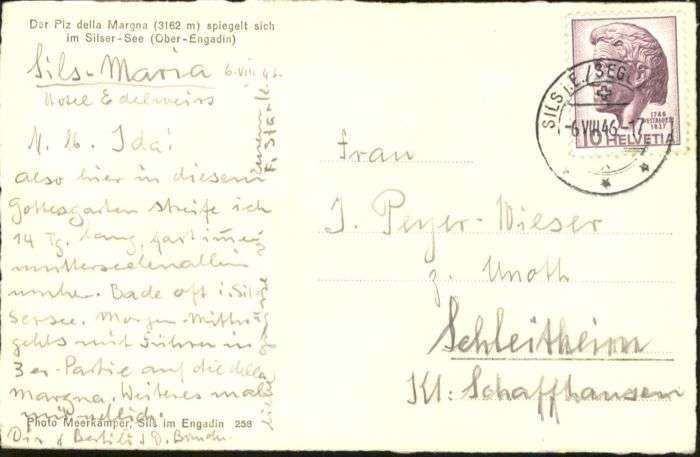 Der Piz della Margna (3162 m) spiegelt sich
im Silser-See (Ober-Engadin)
Sils-Maria 6.VIII 46.
Hotel Edelweiss
M. lb. Ida!
also hier in diesem
Gottesgarten streife ich
14 Tg. lang, fast immer
mutterseelenallein
umher. Bade oft i. Sil-
sersee. Morgen Mittwoch
gehts mit Führer in
3er-Partie auf die della
Margna. Weiteres mal
mündlich.
Photo Meerkämper, Sils im Engadin 258
Dir &
F. Stark
SILS i.E./SEG
-6.VIII.46.-17
1746
PESTALOZZI
1827
10 HELVETIA
Frau
J. Peyer-Wieser
z. Unoth
Schleitheim
Kt: Schaffhausen